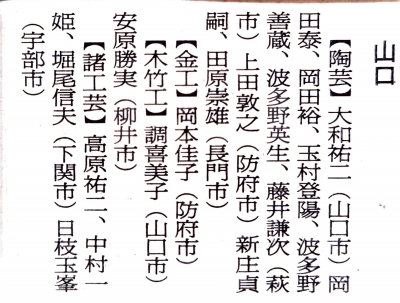 山口
【陶芸】大和祐二（山口市）岡
田泰、岡田裕、玉村登陽、波多野
善蔵、波多野英生、藤井謙次（萩
市）上田敦之（防府市）新庄貞
嗣、田原崇雄（長門市）
【金工】岡本佳子（防府市）
【木竹工】調喜美子（山口市）
安原勝実（柳井市）
【諸工芸】高原祐二、中村一
姫、堀尾信夫（下関市）日枝玉峯
（宇部市）